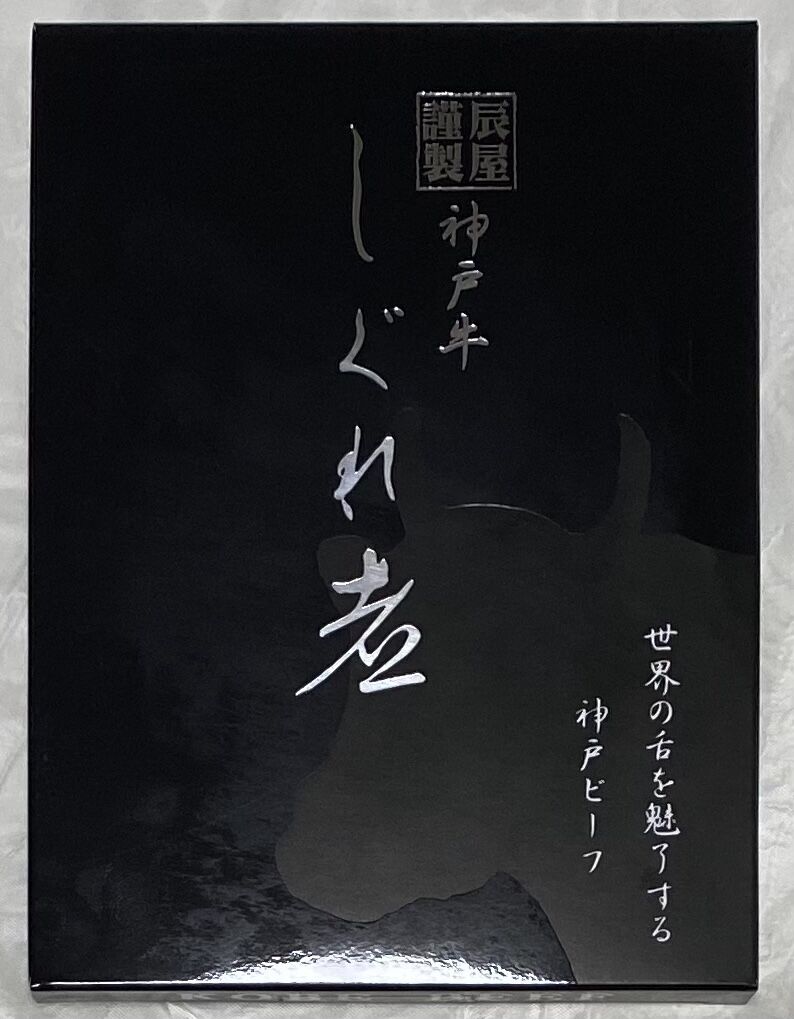 辰屋
謹製
神戸牛
しぐれ煮
世界の舌を魅了する
神戸ビーフ
KOBE BEEF